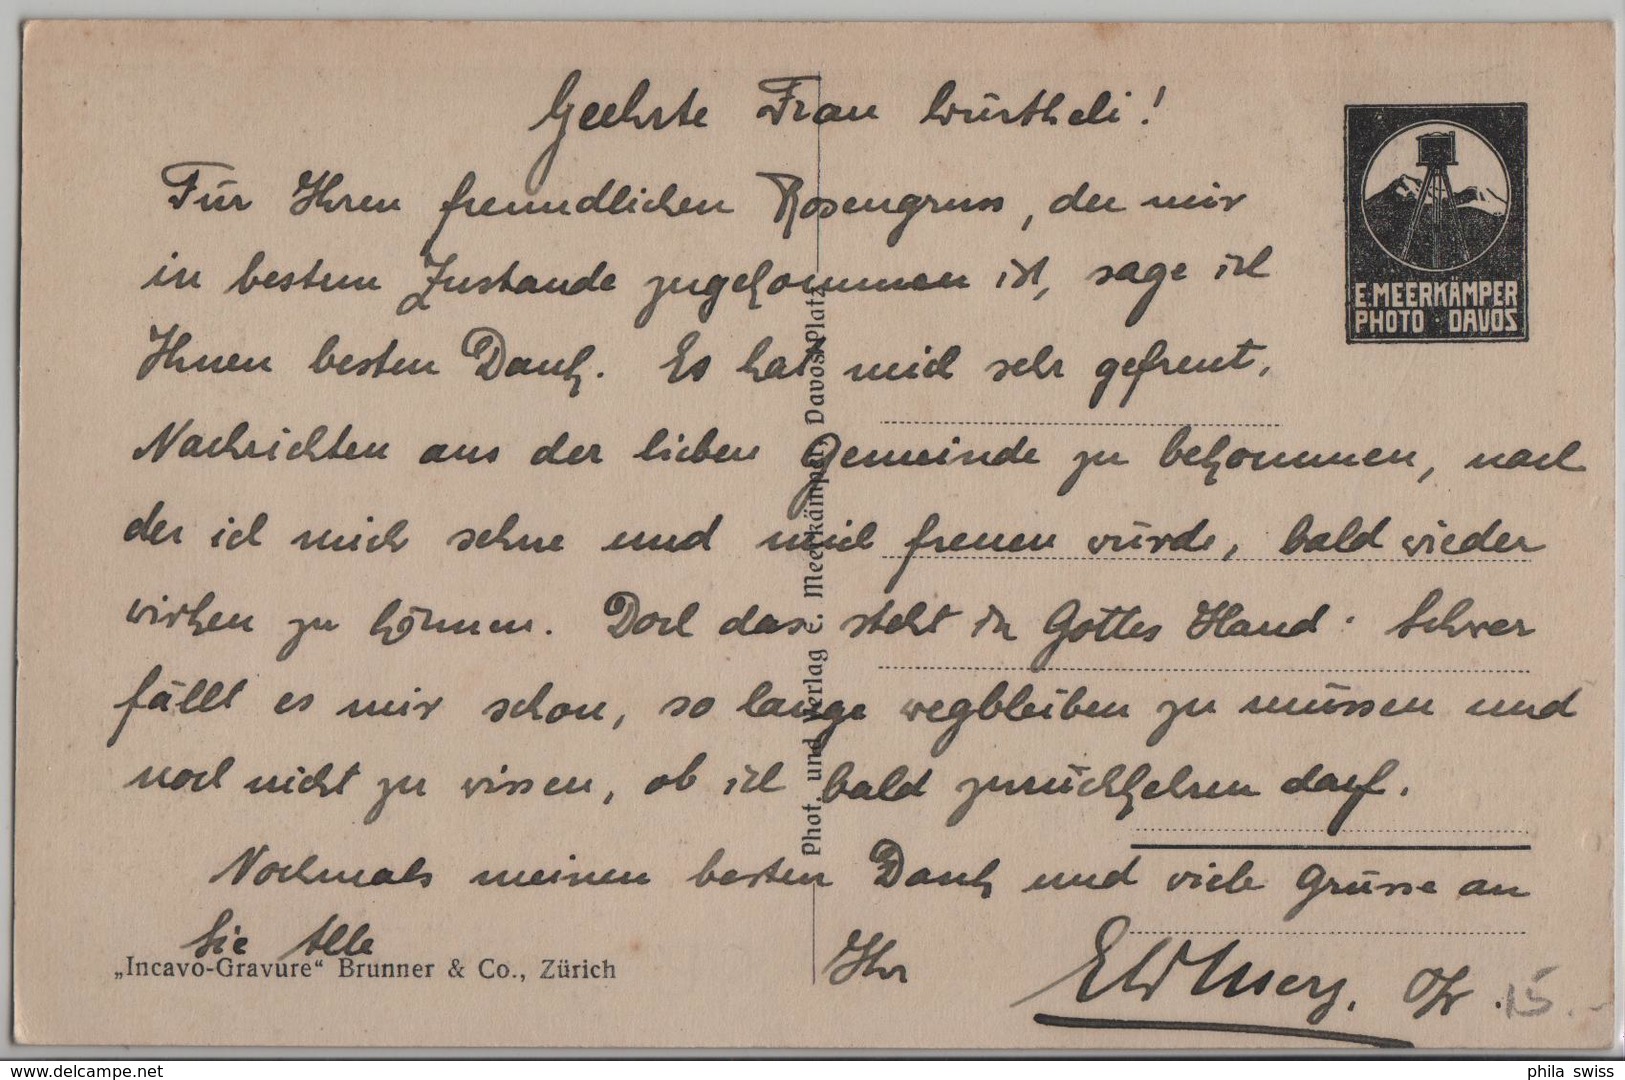 Geehrte Frau Würtheli!
Für Ihren freundlichen Rosengruss, der mir
in bestem Zustande zugekommen ist, sage ich
Ihnen besten Dank. Es hat mich sehr gefreut,
Nachrichten aus der lieben Gemeinde zu bekommen, nach
der ich mich sehne und mich freuen würde, bald wieder
wirken zu können. Doch das steht in Gottes Hand. Schwer
fällt es mir schon, so lange wegbleiben zu müssen und
noch nicht zu wissen, ob ich bald zurückkehren darf.
Nochmals meinen besten Dank und viele Grüsse an
Sie Alle
Ihr
E. MEERKÄMPER
PHOTO · DAVOS
Phot. und Verlag E. Meerkämper, Davos-Platz
„Incavo-Gravure“ Brunner & Co., Zürich
15.-
phila swiss
delcampe.net